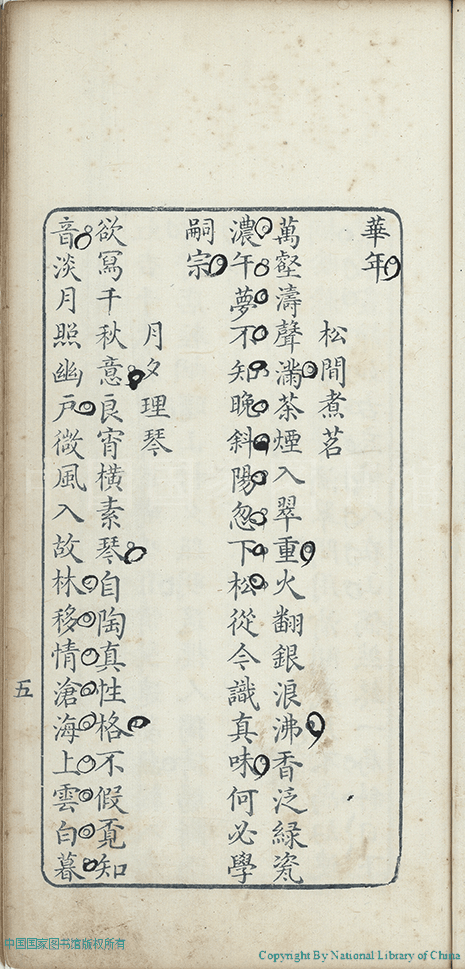 華年
松間煮茗
萬壑濤聲滿茶煙入翠重火翻銀浪沸香泛綠瓷
濃午夢不知晚斜陽忽下松從今識真味何必學
嗣宗
月夕理琴
欲寫千秋意良宵橫素琴自陶真性格不假覔知
音淡月照幽戶微風入故林移情滄海上雲白暮
五
中国国家图书馆版权所有
Copyright By National Library of China